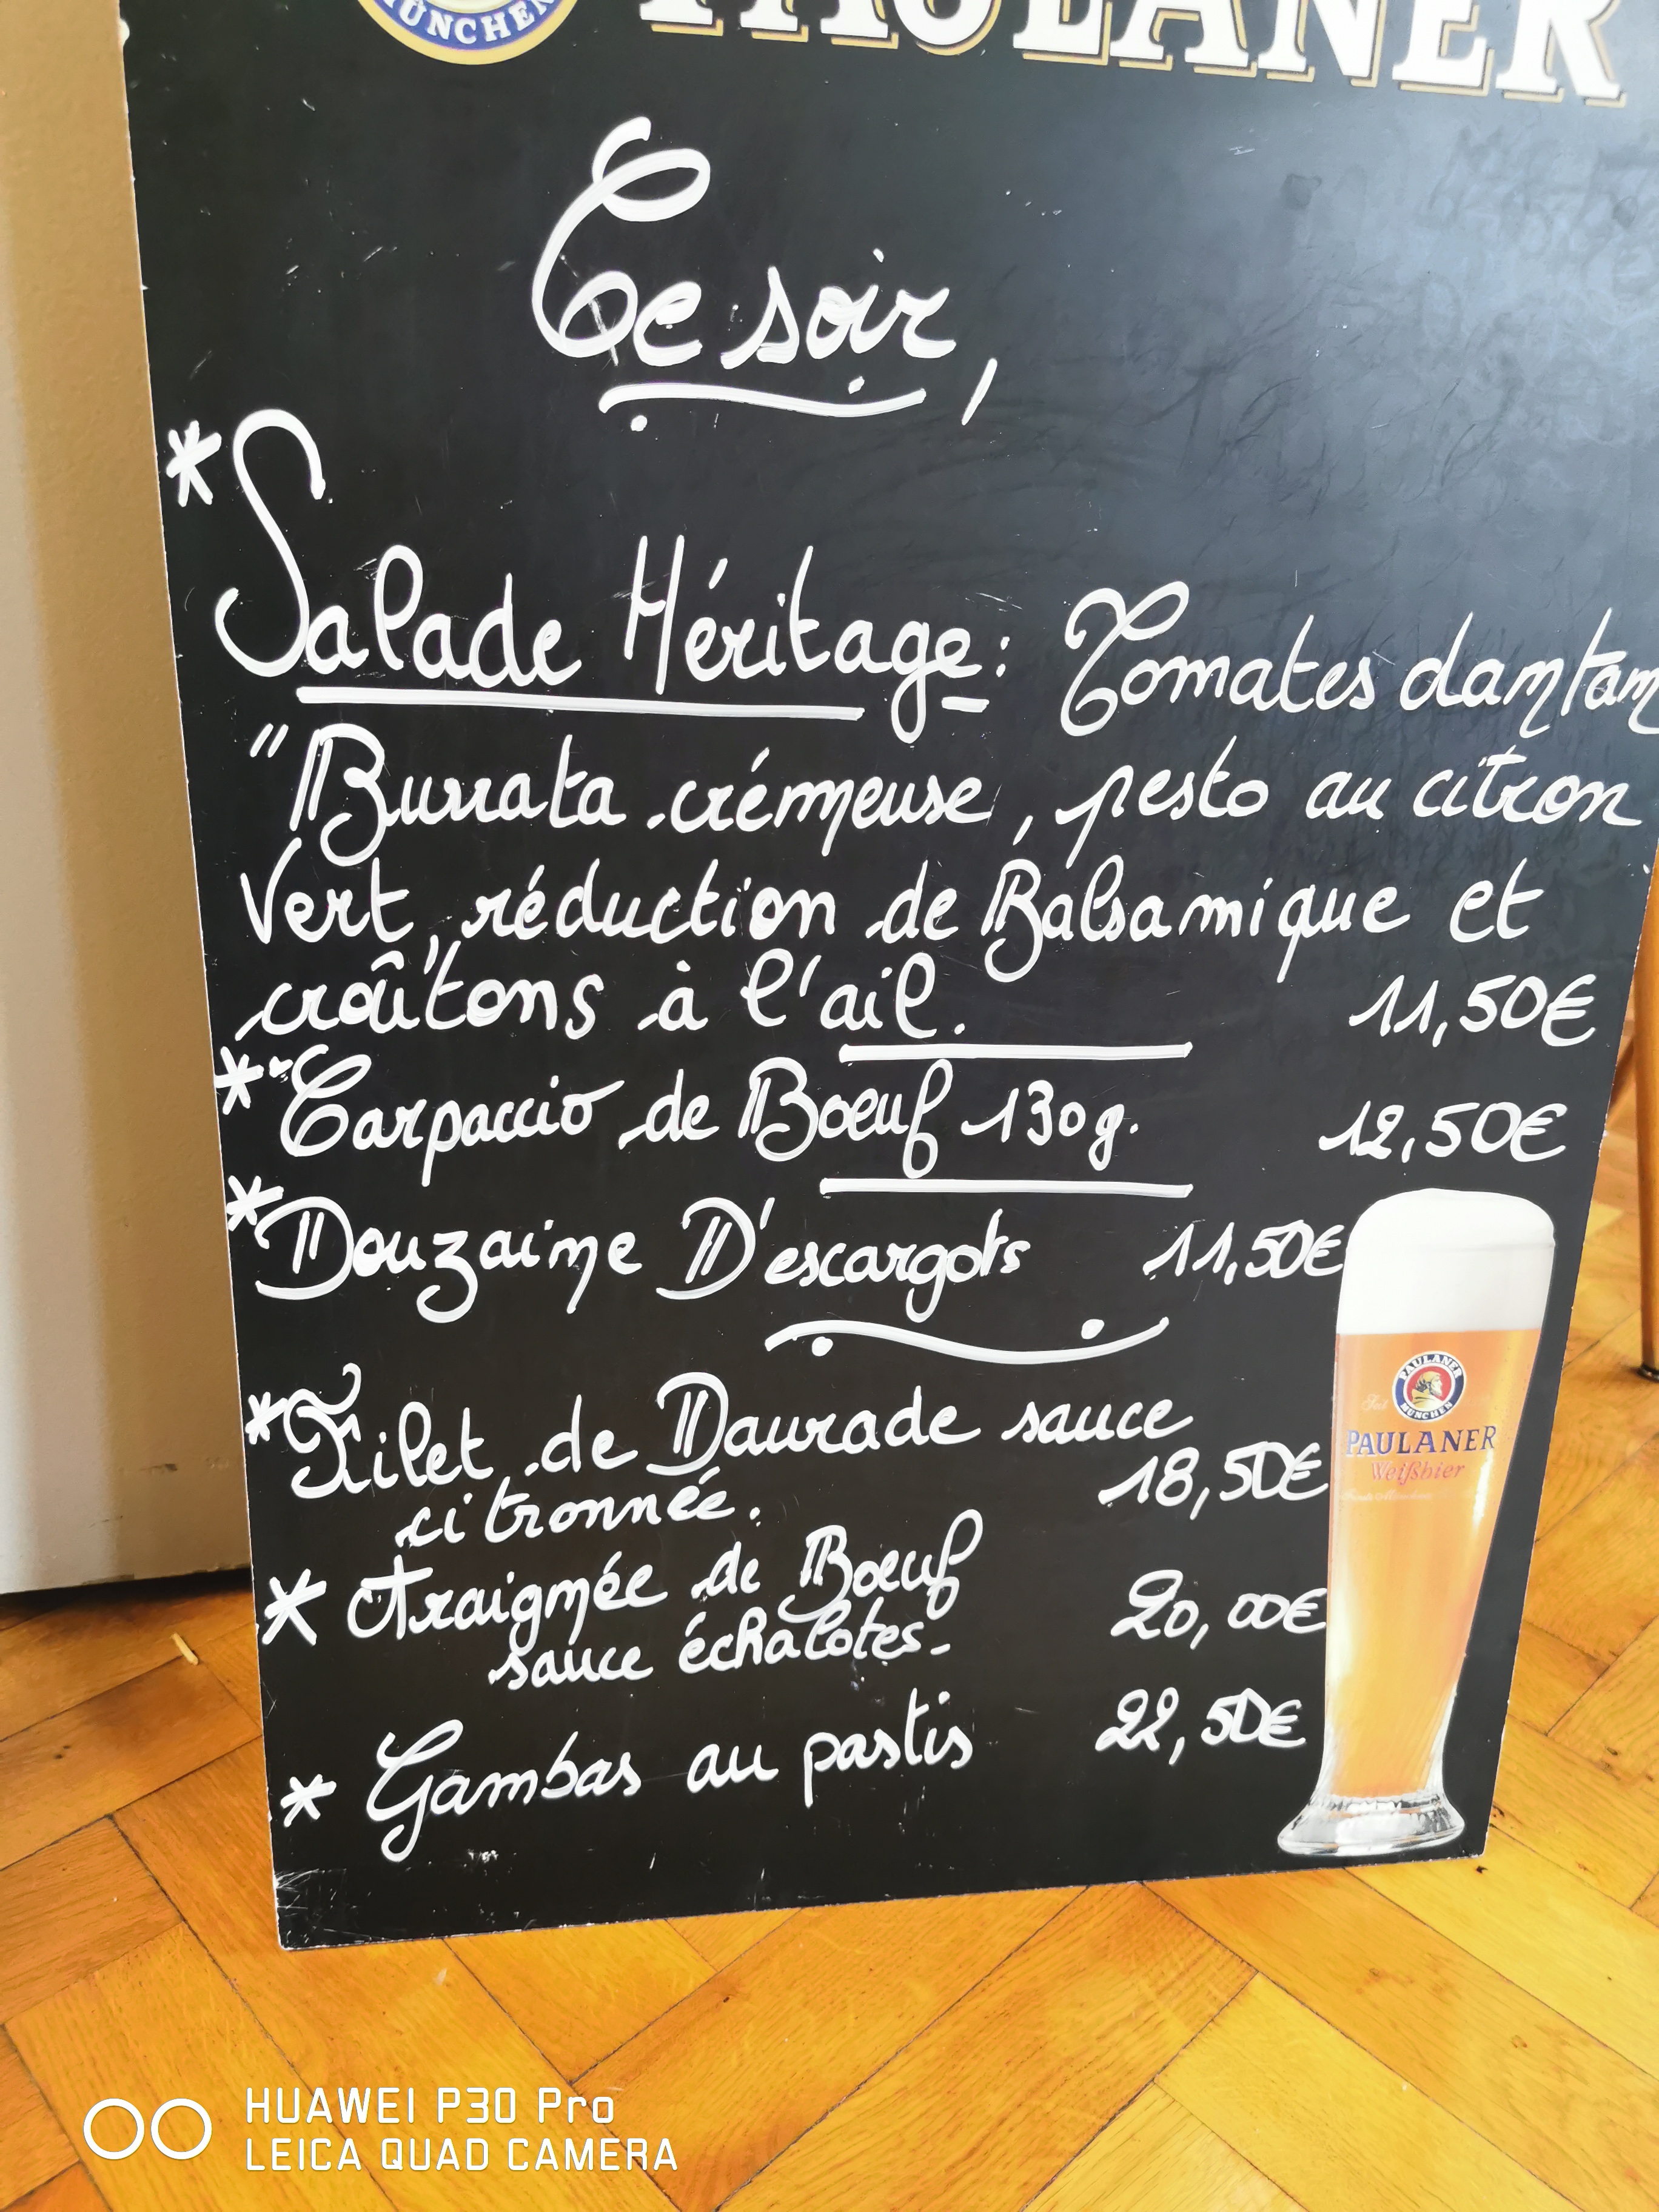 MÜNCHEN
PAULANER
Ce soir,
* Salade Héritage : Tomates dantan
"Burrata crémeuse, pesto au citron
Vert, réduction de Balsamique et
croûtons à l'ail. 11,50€
* Carpaccio de Boeuf 130g. 12,50€
* Douzaine D'escargots 11,50€
* Filet de Daurade sauce
citronnée. 18,50€
* Araignée de Boeuf
sauce échalotes- 20,00€
* Gambas au pastis 22,50€
PAULANER
MÜNCHEN
PAULANER
Weißbier
HUAWEI P30 Pro
LEICA QUAD CAMERA